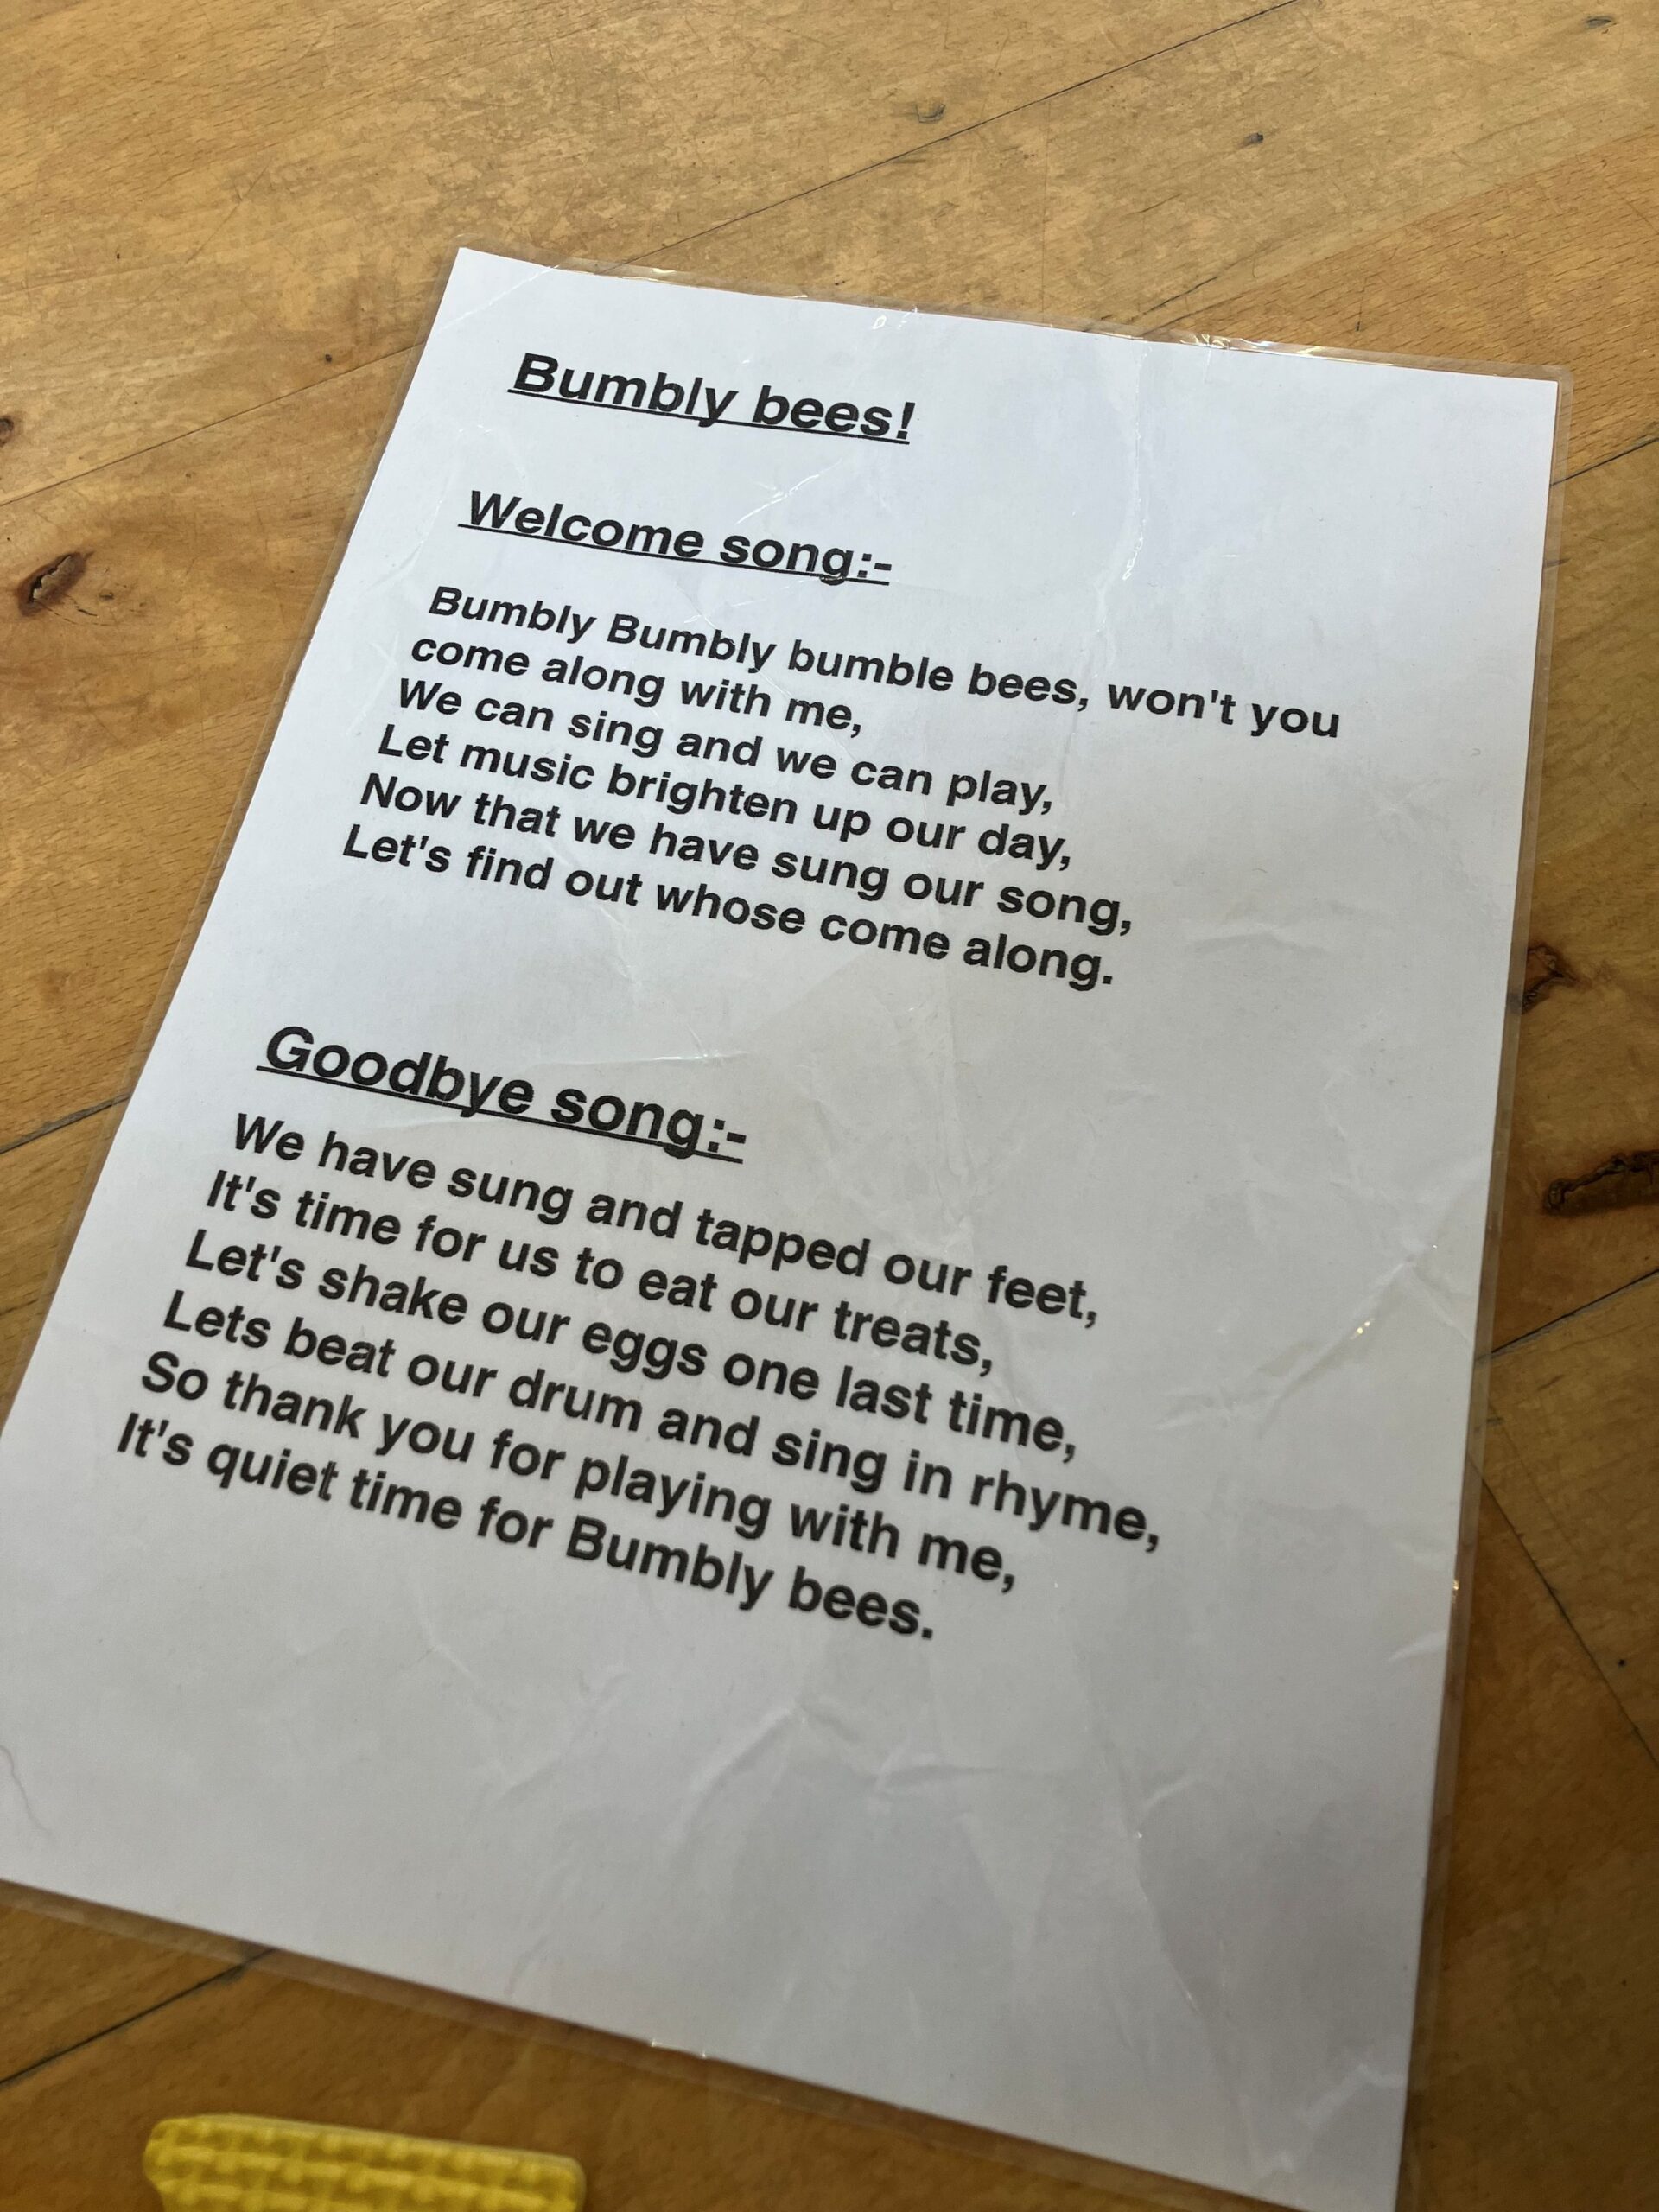 Bumbly bees!
Welcome song:-
Bumbly Bumbly bumble bees, won't you
come along with me,
We can sing and we can play,
Let music brighten up our day,
Now that we have sung our song,
Let's find out whose come along.
Goodbye song:-
We have sung and tapped our feet,
It's time for us to eat our treats,
Let's shake our eggs one last time,
Lets beat our drum and sing in rhyme,
So thank you for playing with me,
It's quiet time for Bumbly bees.